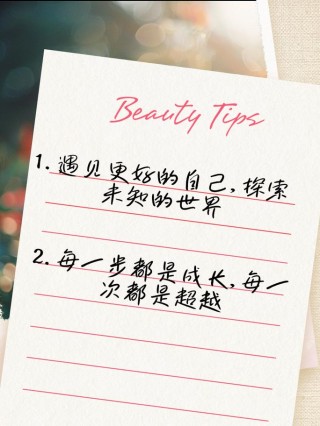 Beauty Tips
1. 遇见更好的自己, 探索
未知的世界
2. 每一步都是成长, 每一
次都是超越